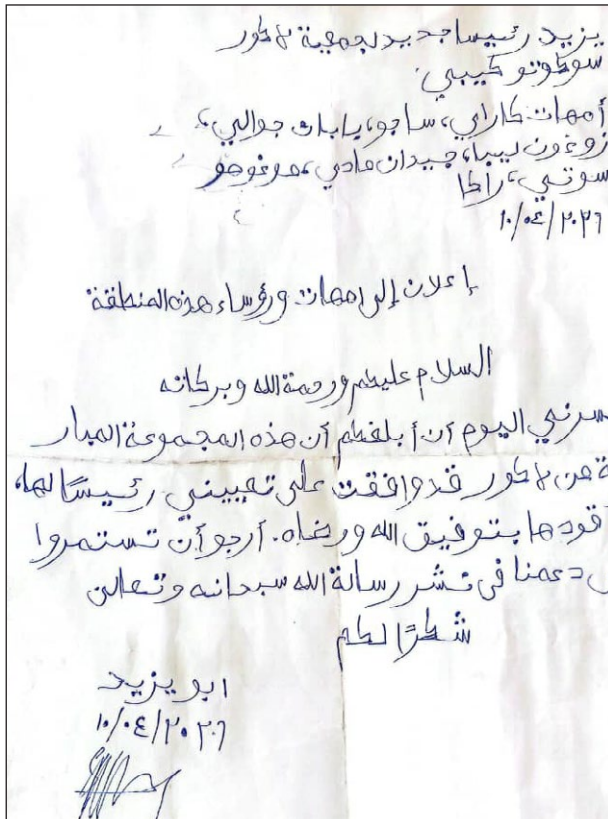 يزيد رئيسا جديد لجمعية لاكور
سوكوتو كيبي.
أمهات كاراي، ساجو، يابات جوالي،
زوغون ليبا، جيدان مادي،
سوتي، راكا
١٠/٠٤/٢٠٢٦
إعلان إلى امهات ورؤساء هذه المنطقة
السلام عليكم ورحمة الله وبركاته
سرني اليوم أن أبلغكم أن هذه المجموعة المبار
ة من لاكور قد وافقت على تعييني رئيسًا لها،
قودها بتوفيق الله ورضاه. أرجو أن تستمروا
دعمنا في نشر رسالة الله سبحانه وتعالى
شكرًا لكم
ابو يزيد
١٠/٠٤/٢٠٢٦